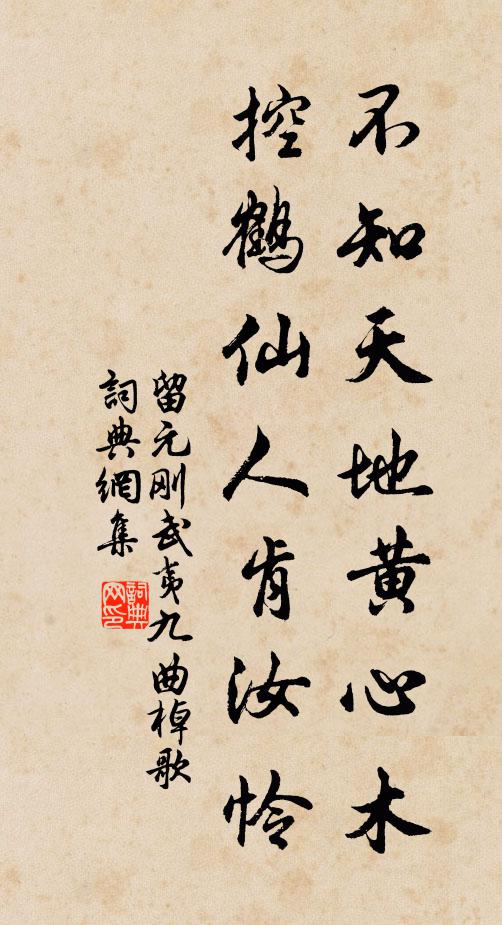 不知天地黄心木
控鶴仙人肯汝怜
留元刚武夷九曲棹歌
詞典網集
詞典网印